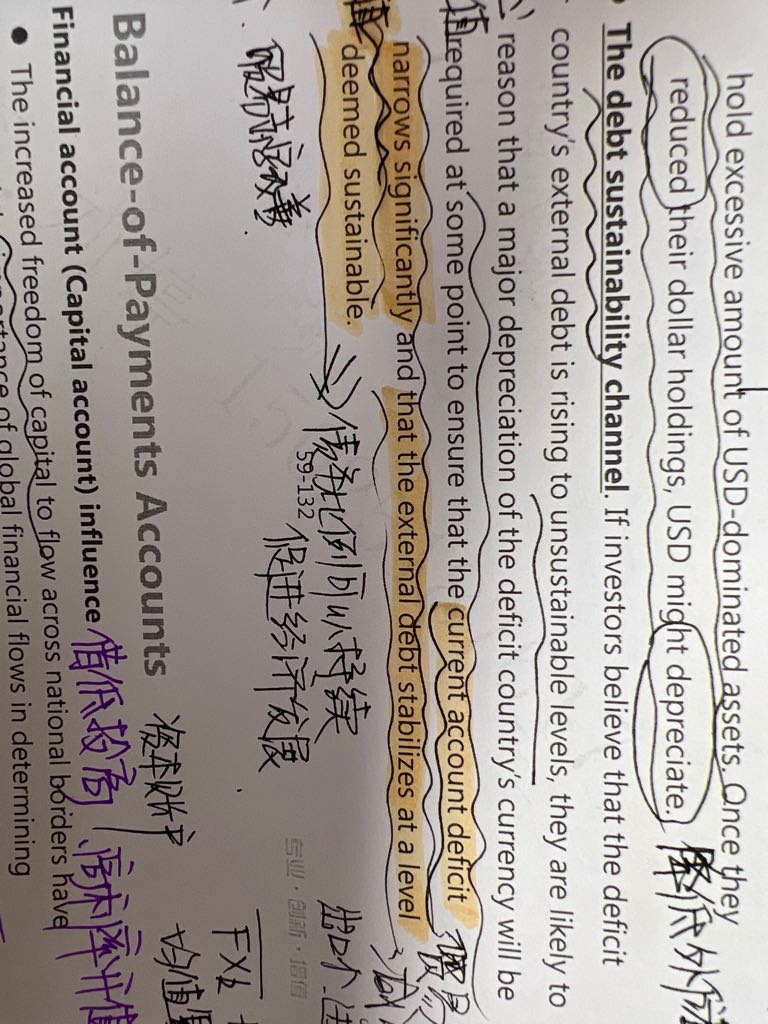 hold excessive amount of USD-dominated assets. Once they
reduced their dollar holdings, USD might depreciate.
降低外债
The debt sustainability channel. If investors believe that the deficit
country's external debt is rising to unsustainable levels, they are likely to
reason that a major depreciation of the deficit country's currency will be
required at some point to ensure that the current account deficit
narrows significantly and that the external debt stabilizes at a level
deemed sustainable.
贸易
出口↑
债务比例可以持续
59-132
促进经济发展
专业·创新·增值
Balance-of-Payments Accounts
资本账户
Financial account (Capital account) influence
借低投高
高利率升值
● The increased freedom of capital to flow across national borders have
importance of global financial flows in determining